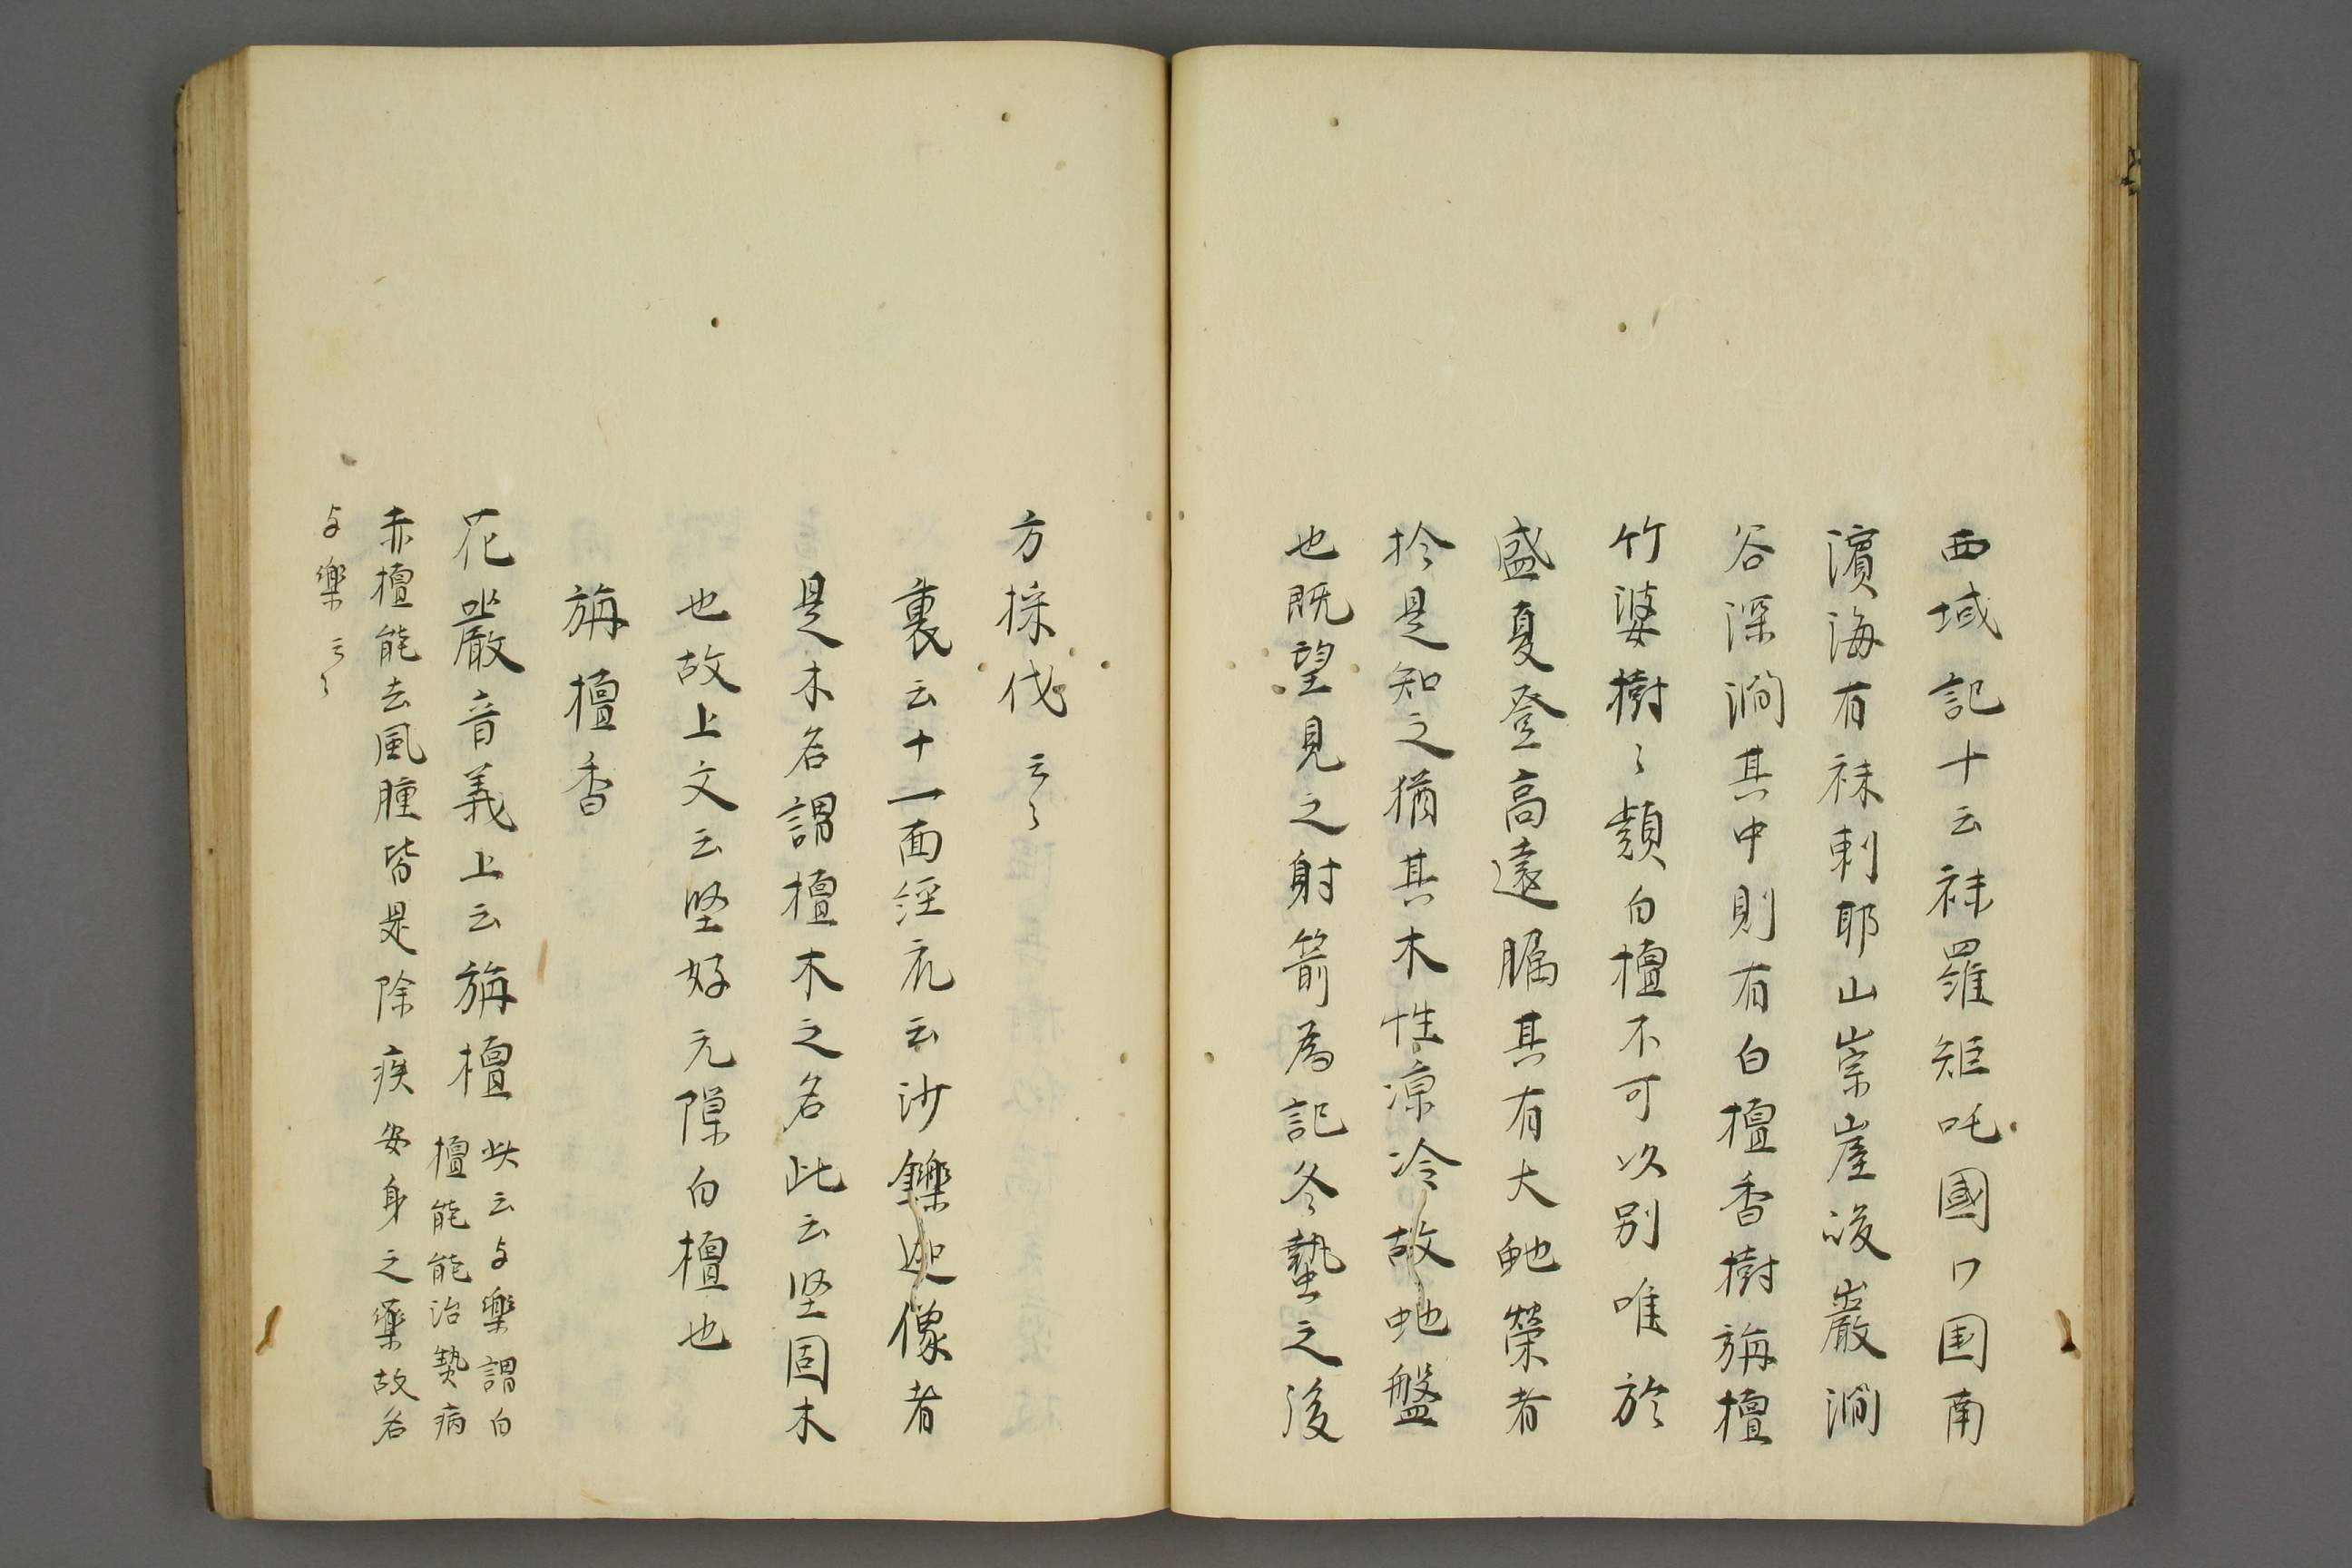 西域記十云秣羅矩吒國ワ国南
濱海有秣剌耶山崇崖峻巖澗
谷深澗其中則有白檀香樹栴檀
竹婆樹〻類白檀不可以別唯於
盛夏登高遠矚其有大虵縈者
於是知之猶其木性凉冷故虵盤
也既望見之射箭為記冬蟄之後
方採伐云〻
裏云十一面經疏云沙鑠迦像者
是木名謂檀木之名此云坚固木
也故上文云坚好无隙白檀也
栴檀香
花嚴音義上云栴檀
此云与樂謂白
檀能能治熱病
赤檀能去風腫皆是除疾安身之藥故名
与樂云〻